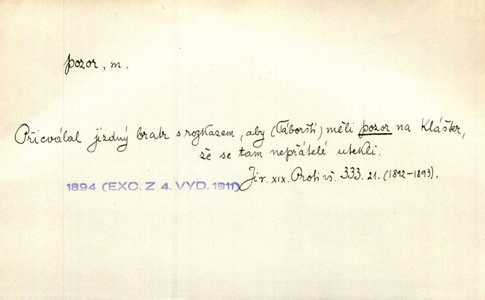 pozor, m.
Přicválal jízdný bratr s rozkazem, aby (Táborští) měli pozor na Klášter,
že se tam nepřátelé utekli.
1894 (EXC. Z 4. VYD. 1911) Jir. XIX. Proti vš. 333. 21. (1892-1893).